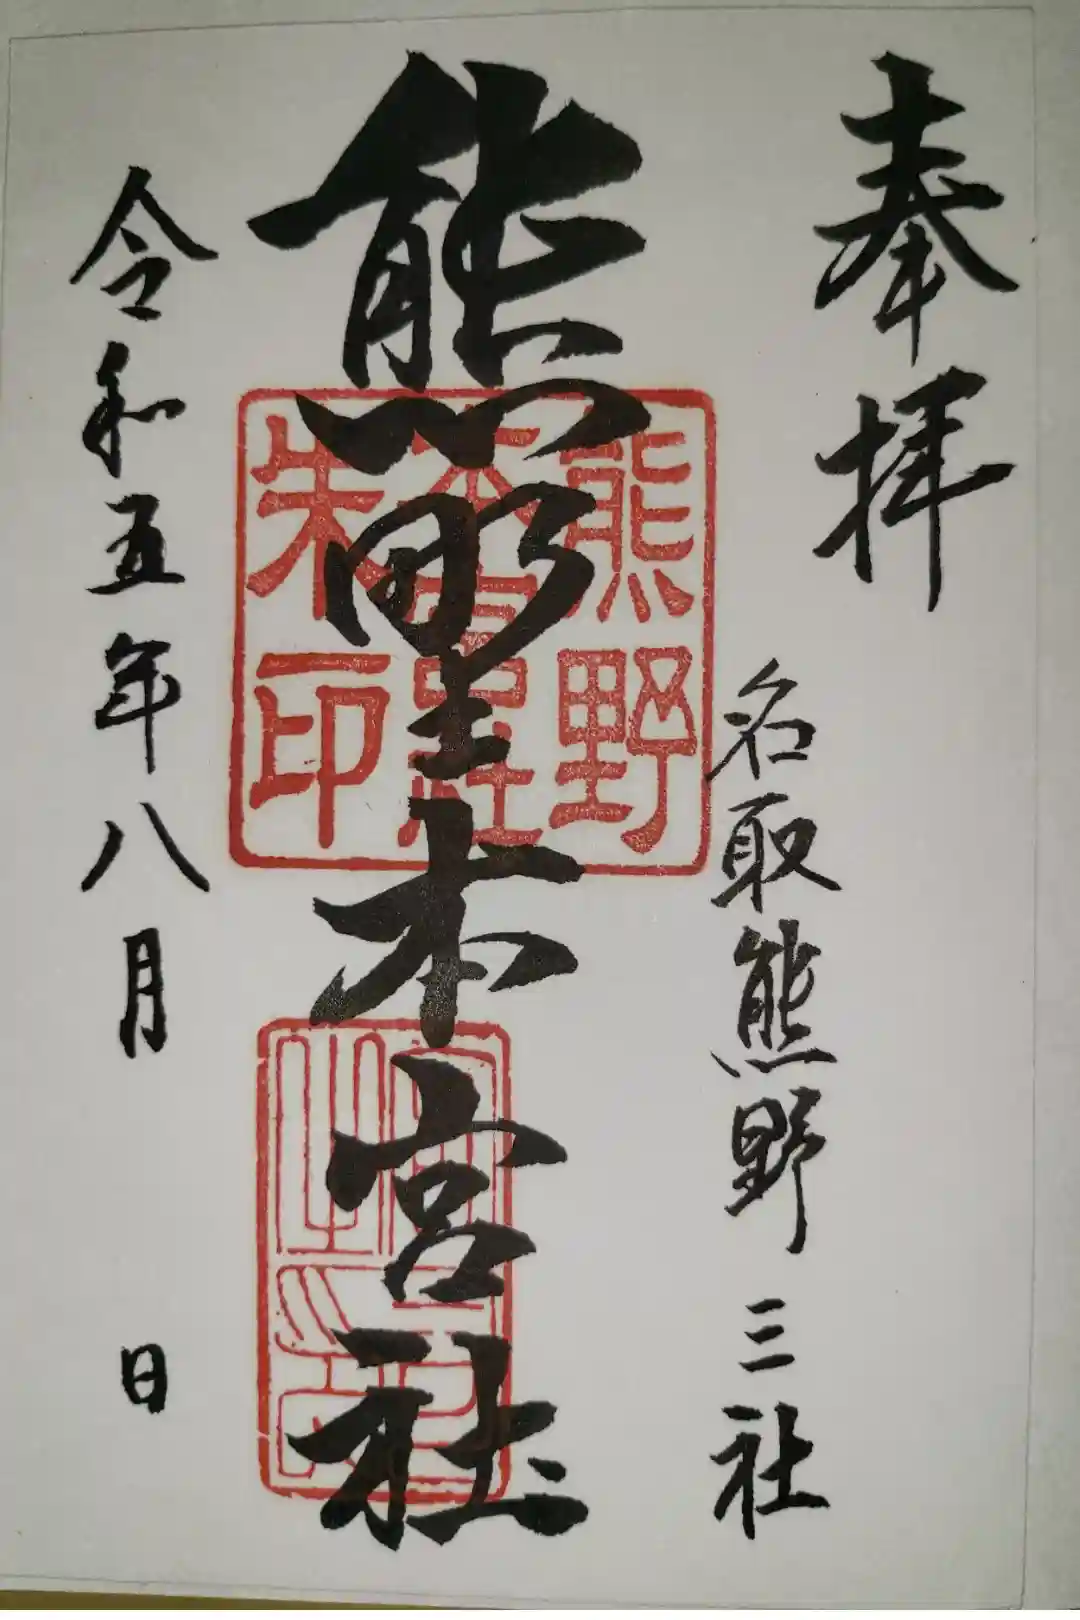 奉拝
名取熊野三社
熊野本宮社
熊野
本宮社
朱印
令和五年八月 日